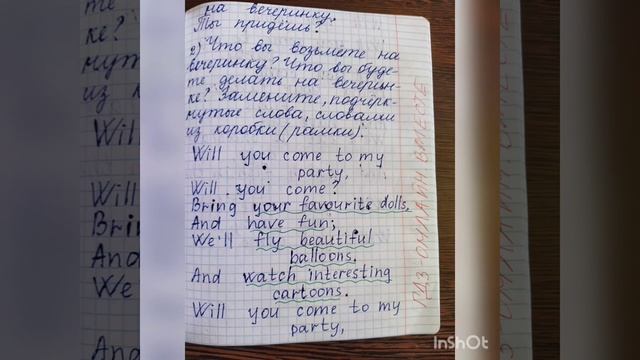 на вечеринку.
Ты придёшь?
2) Что вы возьмёте на
вечеринку? Что вы буде-
те делать на вечерин-
ке? Замените, подчёрк-
нутые слова, словами
из коробки (рамки).
Will you come to my
party,
Will you come?
Bring your favourite dolls,
And have fun;
We'll fly beautiful
balloons.
And watch interesting
cartoons.
Will you come to my
party,
ГДЗ ОНЛАЙН ВМЕСТЕ
InShOt